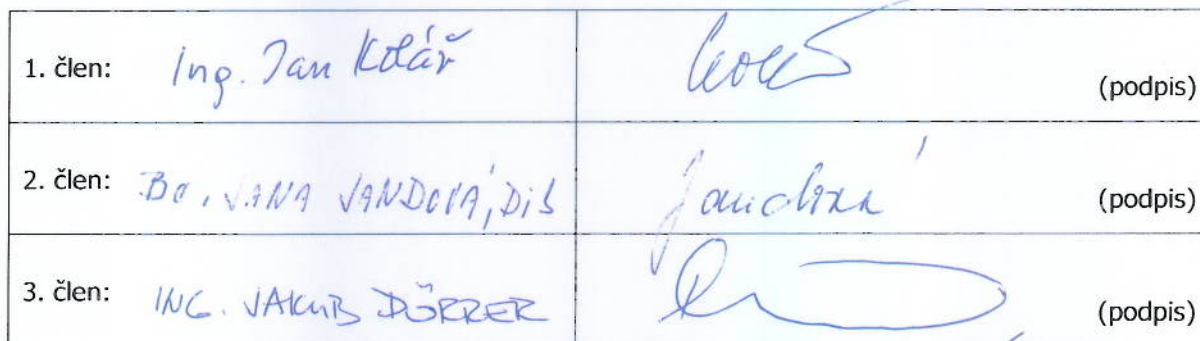 1. člen: Ing. Jan Kolář (podpis)
2. člen: Bc. JANA JANDOVÁ, DiS Jandová (podpis)
3. člen: ING. JAKUB DÖRRER (podpis)